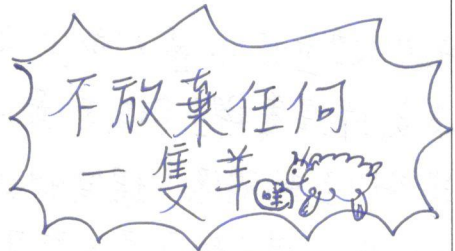 不放棄任何
一隻羊
咩